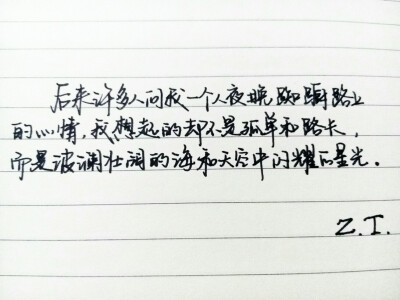 后来许多人问我一个人夜晚踟蹰路上
的心情,我想起的却不是孤单和路长,
而是波澜壮阔的海和天空中闪耀的星光。
Z.T.